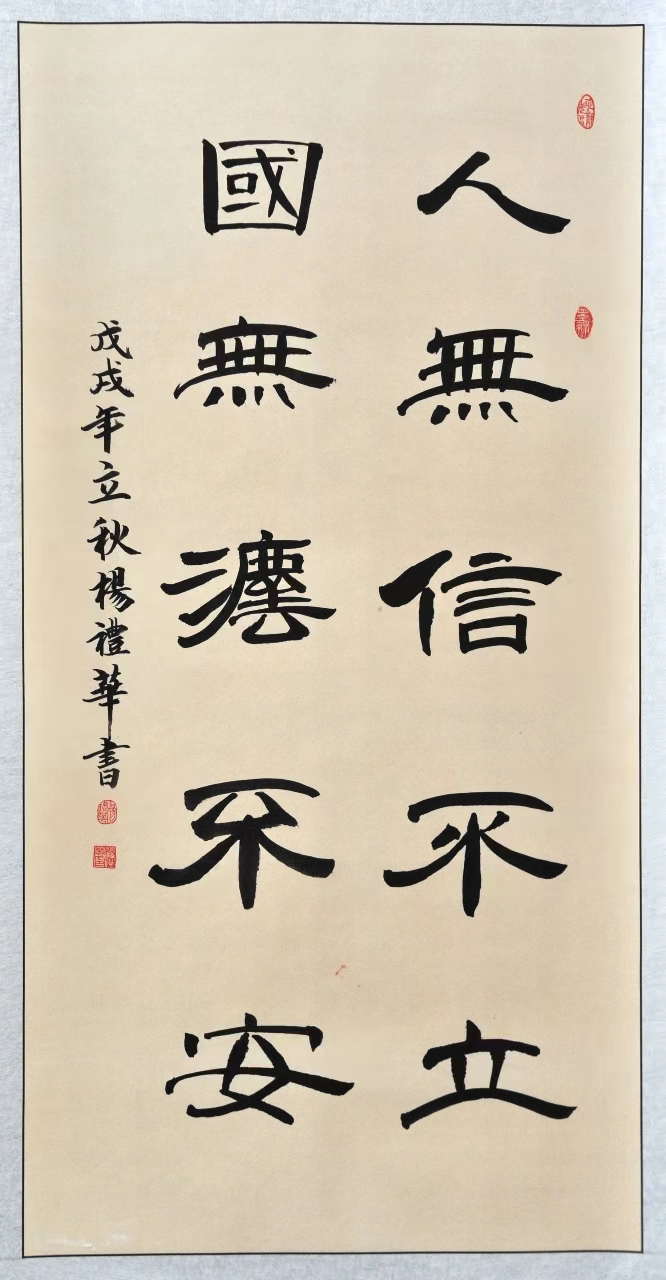 人無信不立
國無灋不安
戊戌年立秋楊禮華書